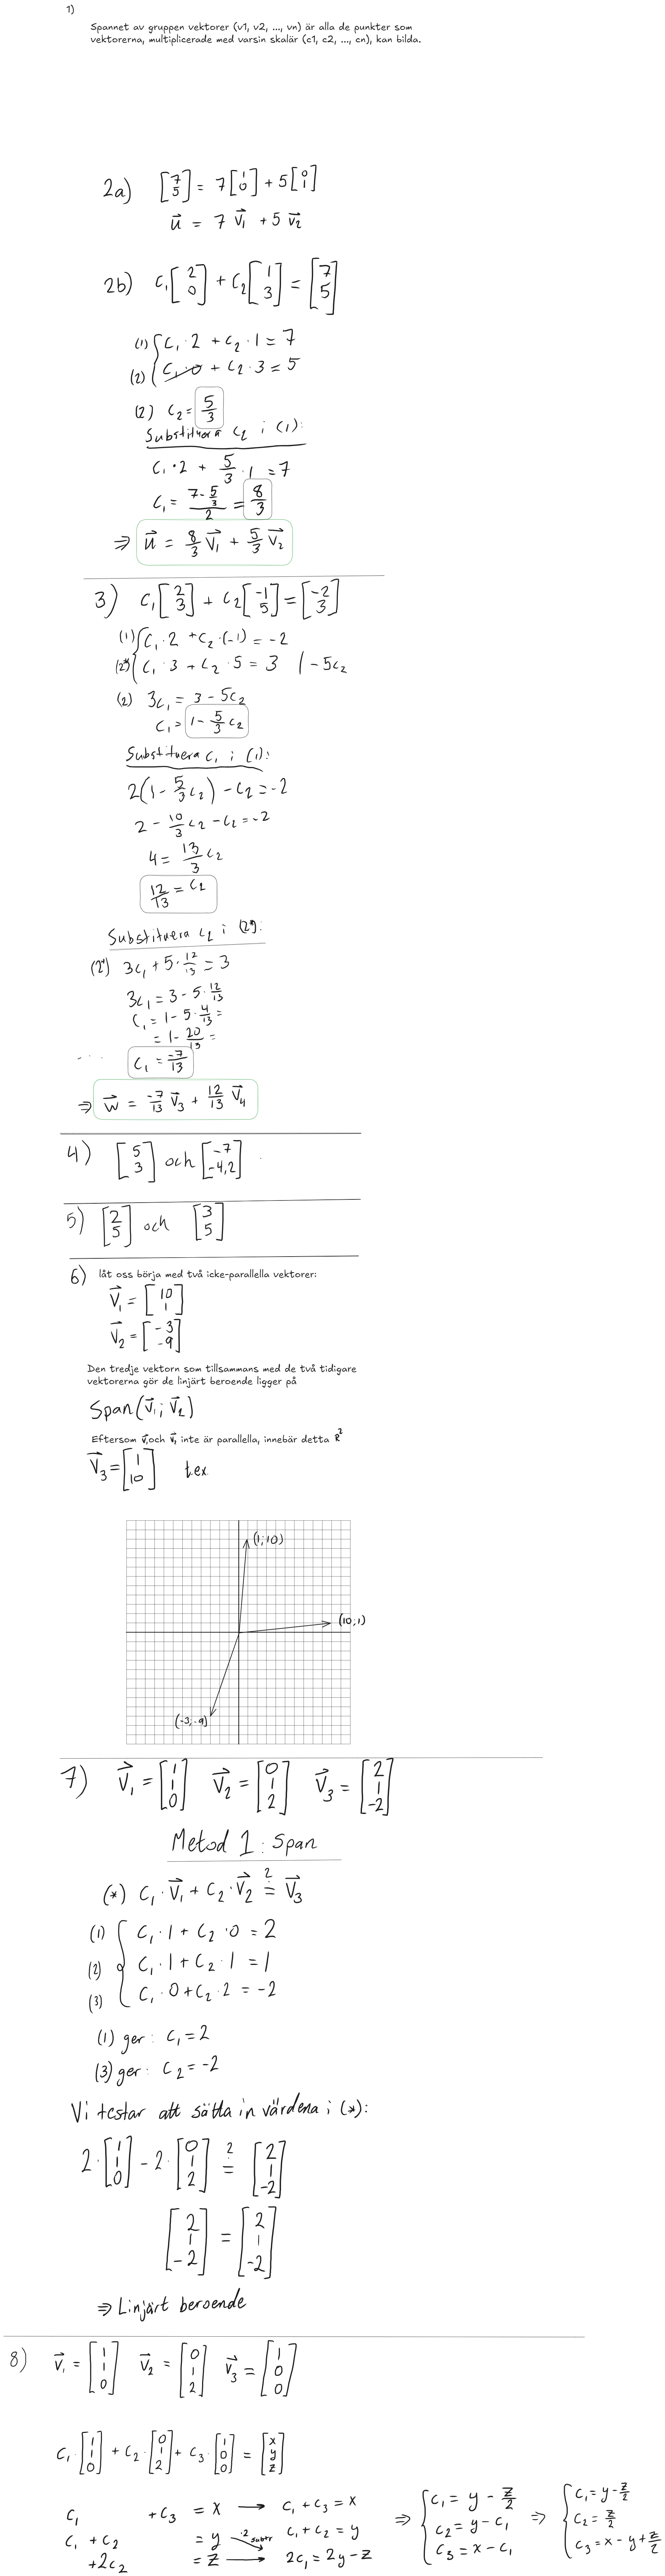 1)
Spannet av gruppen vektorer (v1, v2, ..., vn) är alla de punkter som
vektorerna, multiplicerade med varsin skalär (c1, c2, ..., cn), kan bilda.
2a) [7 5] = 7 [1 0] + 5 [0 1]
u⃗ = 7 v⃗₁ + 5 v⃗₂
2b) c₁ [2 0] + c₂ [1 3] = [7 5]
(1) { c₁ · 2 + c₂ · 1 = 7
(2) { c₁ · 0 + c₂ · 3 = 5
(2) c₂ = 5/3
Substituera c₂ i (1):
c₁ · 2 + 5/3 · 1 = 7
c₁ = (7 - 5/3)/2 = 8/3
⇒ u⃗ = 8/3 v⃗₁ + 5/3 v⃗₂
3) c₁ [2 3] + c₂ [-1 5] = [-2 3]
(1) { c₁ · 2 + c₂ · (-1) = -2
(2*) { c₁ · 3 + c₂ · 5 = 3 | - 5c₂
(2) 3c₁ = 3 - 5c₂
c₁ = 1 - 5/3 c₂
Substituera c₁ i (1):
2(1 - 5/3 c₂) - c₂ = -2
2 - 10/3 c₂ - c₂ = -2
4 = 13/3 c₂
12/13 = c₂
Substituera c₂ i (2*):
(2*) 3c₁ + 5 · 12/13 = 3
3c₁ = 3 - 5 · 12/13
c₁ = 1 - 5 · 4/13 =
= 1 - 20/13 =
c₁ = -7/13
⇒ w⃗ = -7/13 v⃗₃ + 12/13 v⃗₄
4) [5 3] och [-7 -4,2]
5) [2 5] och [3 5]
6) låt oss börja med två icke-parallella vektorer:
v⃗₁ = [10 1]
v⃗₂ = [-3 -9]
Den tredje vektorn som tillsammans med de två tidigare
vektorerna gör de linjärt beroende ligger på
Span(v⃗₁; v⃗₂)
Eftersom v⃗₁ och v⃗₂ inte är parallella, innebär detta R²
v⃗₃ = [1 10] t.ex.
(1;10)
(10;1)
(-3;-9)
7) v⃗₁ = [1 1 0] v⃗₂ = [0 1 2] v⃗₃ = [2 1 -2]
Metod 1: Span
(*) c₁ · v⃗₁ + c₂ · v⃗₂ ?= v⃗₃
(1) { c₁ · 1 + c₂ · 0 = 2
(2) { c₁ · 1 + c₂ · 1 = 1
(3) { c₁ · 0 + c₂ · 2 = -2
(1) ger: c₁ = 2
(3) ger: c₂ = -2
Vi testar att sätta in värdena i (*):
2 · [1 1 0] - 2 · [0 1 2] ?= [2 1 -2]
[2 1 -2] = [2 1 -2]
⇒ Linjärt beroende
8) v⃗₁ = [1 1 0] v⃗₂ = [0 1 2] v⃗₃ = [1 0 0]
c₁ · [1 1 0] + c₂ · [0 1 2] + c₃ · [1 0 0] = [x y z]
c₁ + c₃ = x → c₁ + c₃ = x ⇒ { c₁ = y - z/2 ⇒ { c₁ = y - z/2
c₁ + c₂ = y ·2 subtr c₁ + c₂ = y { c₂ = y - c₁ { c₂ = z/2
+2c₂ = z → 2c₁ = 2y - z { c₃ = x - c₁ { c₃ = x - y + z/2